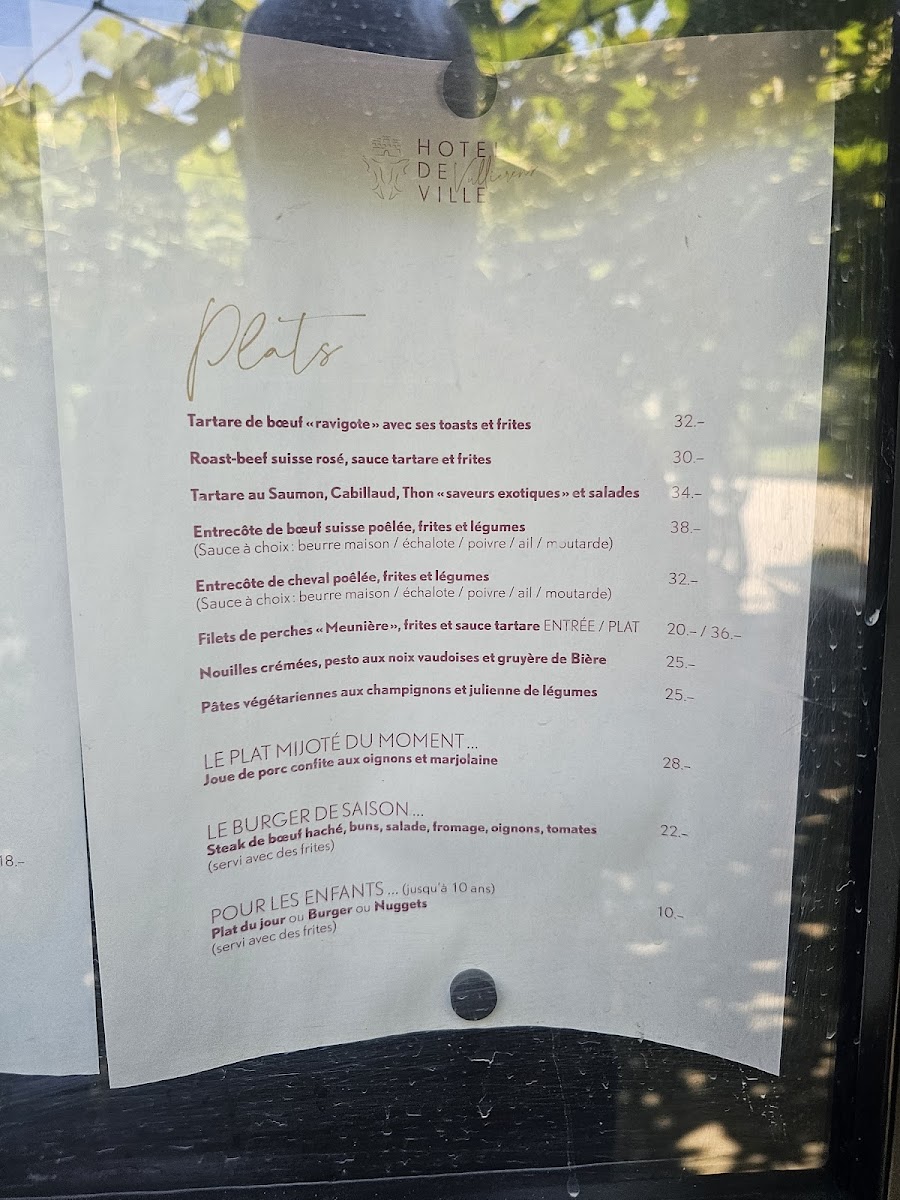 HOTEL
DE
VILLE
Plats
Tartare de bœuf «ravigote» avec ses toasts et frites 32.–
Roast-beef suisse rosé, sauce tartare et frites 30.–
Tartare au Saumon, Cabillaud, Thon «saveurs exotiques» et salades 34.–
Entrecôte de bœuf suisse poêlée, frites et légumes 38.–
(Sauce à choix : beurre maison / échalote / poivre / ail / moutarde)
Entrecôte de cheval poêlée, frites et légumes 32.–
(Sauce à choix : beurre maison / échalote / poivre / ail / moutarde)
Filets de perches «Meunière», frites et sauce tartare ENTRÉE / PLAT 20.– / 36.–
Nouilles crémées, pesto aux noix vaudoises et gruyère de Bière 25.–
Pâtes végétariennes aux champignons et julienne de légumes 25.–
LE PLAT MIJOTÉ DU MOMENT...
Joue de porc confite aux oignons et marjolaine 28.–
LE BURGER DE SAISON...
Steak de bœuf haché, buns, salade, fromage, oignons, tomates 22.–
(servi avec des frites)
POUR LES ENFANTS... (jusqu'à 10 ans)
Plat du jour ou Burger ou Nuggets 10.–
(servi avec des frites)
18.–